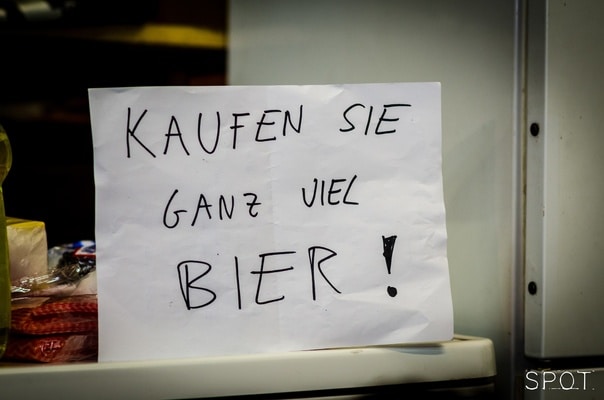 KAUFEN SIE
GANZ VIEL
BIER!
S.P.O.T.